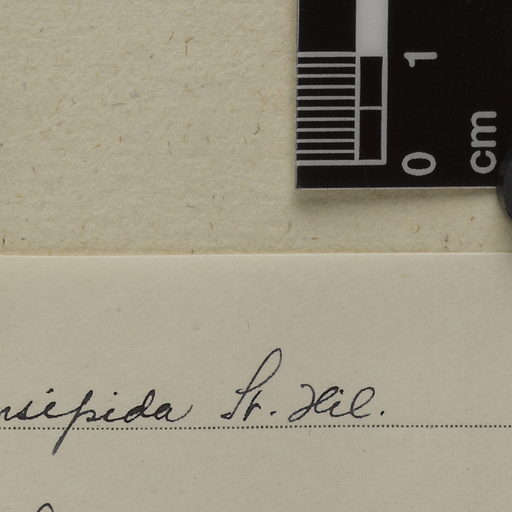 1
0
cm
nsipida St. Hil.